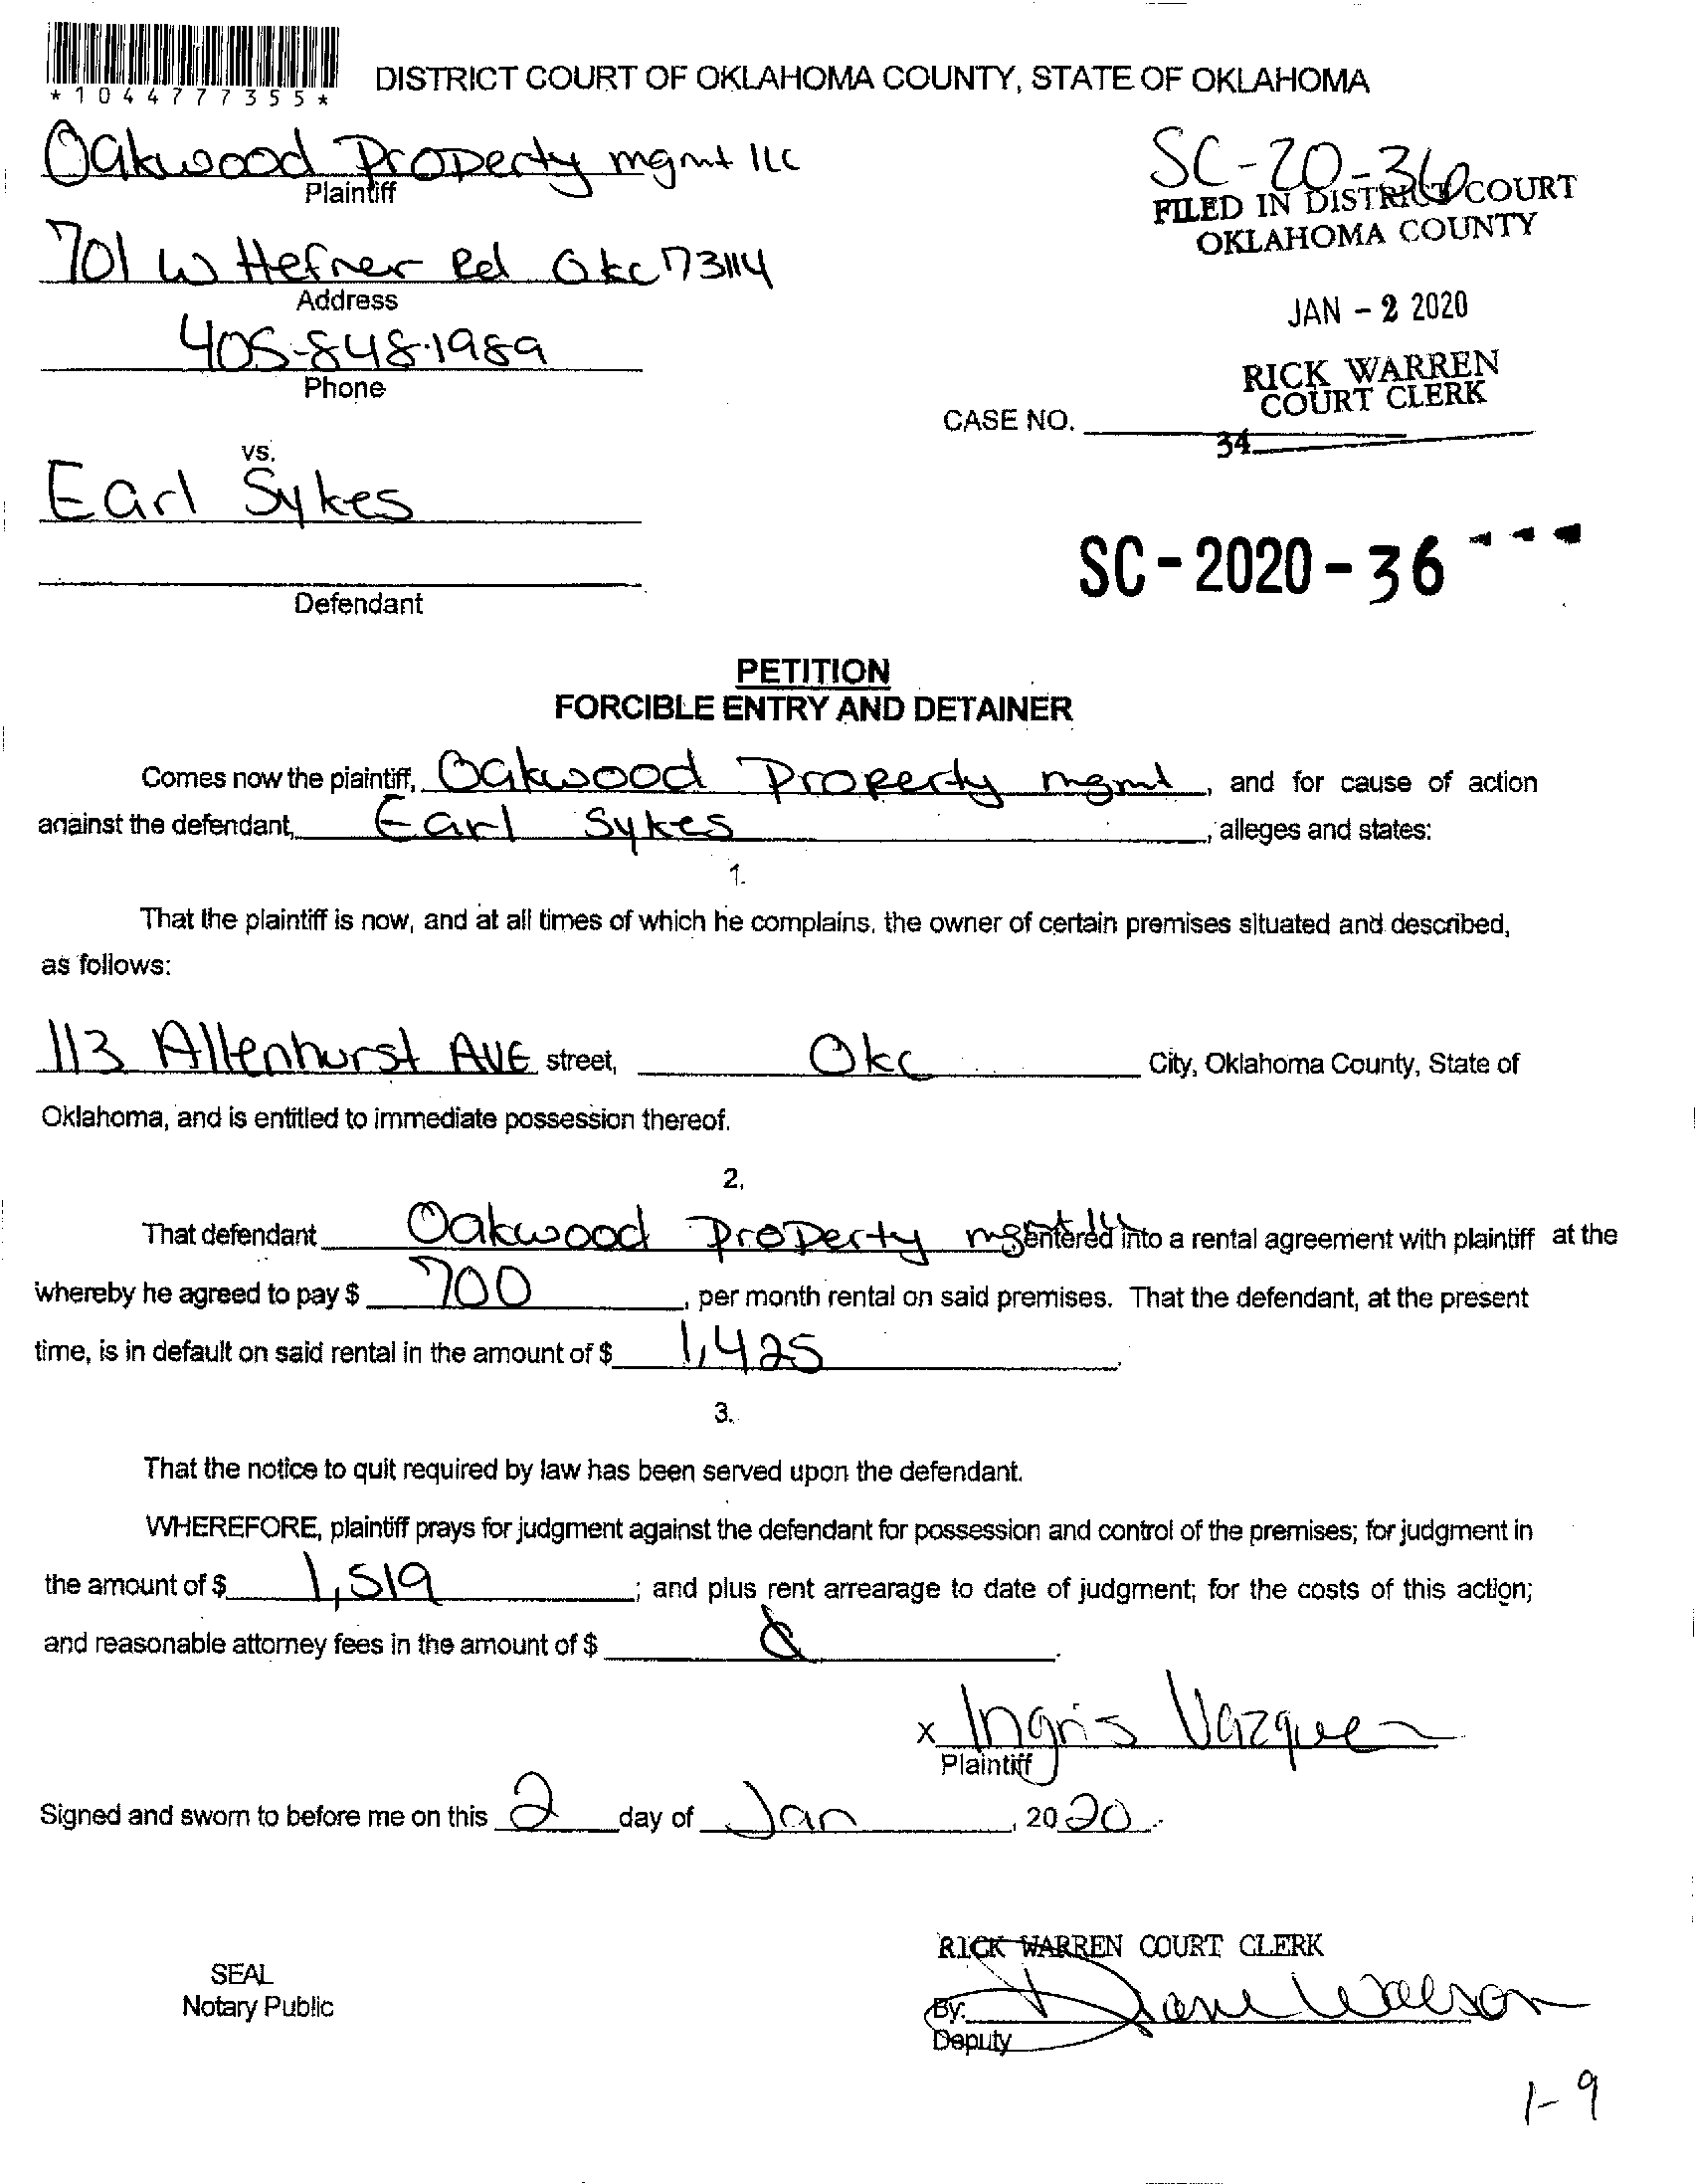 *1044777355*
DISTRICT COURT OF OKLAHOMA COUNTY, STATE OF OKLAHOMA
Oakwood Property mgmt llc
Plaintiff
SC-20-36
FILED IN DISTRICT COURT
OKLAHOMA COUNTY
701 W Hefner Rd Okc 73114
Address
JAN - 2 2020
405-848-1989
Phone
RICK WARREN
COURT CLERK
CASE NO.
34
vs.
Earl Sykes
Defendant
SC-2020-36
PETITION
FORCIBLE ENTRY AND DETAINER
Comes now the plaintiff, Oakwood Property mgmt, and for cause of action
against the defendant, Earl Sykes, alleges and states:
1.
That the plaintiff is now, and at all times of which he complains, the owner of certain premises situated and described,
as follows:
113 Allenhurst AVE street, Okc City, Oklahoma County, State of
Oklahoma, and is entitled to immediate possession thereof.
2.
That defendant Oakwood Property entered into a rental agreement with plaintiff at the
whereby he agreed to pay $ 700, per month rental on said premises. That the defendant, at the present
time, is in default on said rental in the amount of $ 1,425.
3.
That the notice to quit required by law has been served upon the defendant.
WHEREFORE, plaintiff prays for judgment against the defendant for possession and control of the premises; for judgment in
the amount of $ 1,519; and plus rent arrearage to date of judgment; for the costs of this action;
and reasonable attorney fees in the amount of $
x Ingris Vazquez
Plaintiff
Signed and sworn to before me on this 2 day of Jan, 2020.
RICK WARREN COURT CLERK
SEAL
Notary Public
By: Diane Walson
Deputy
1-9